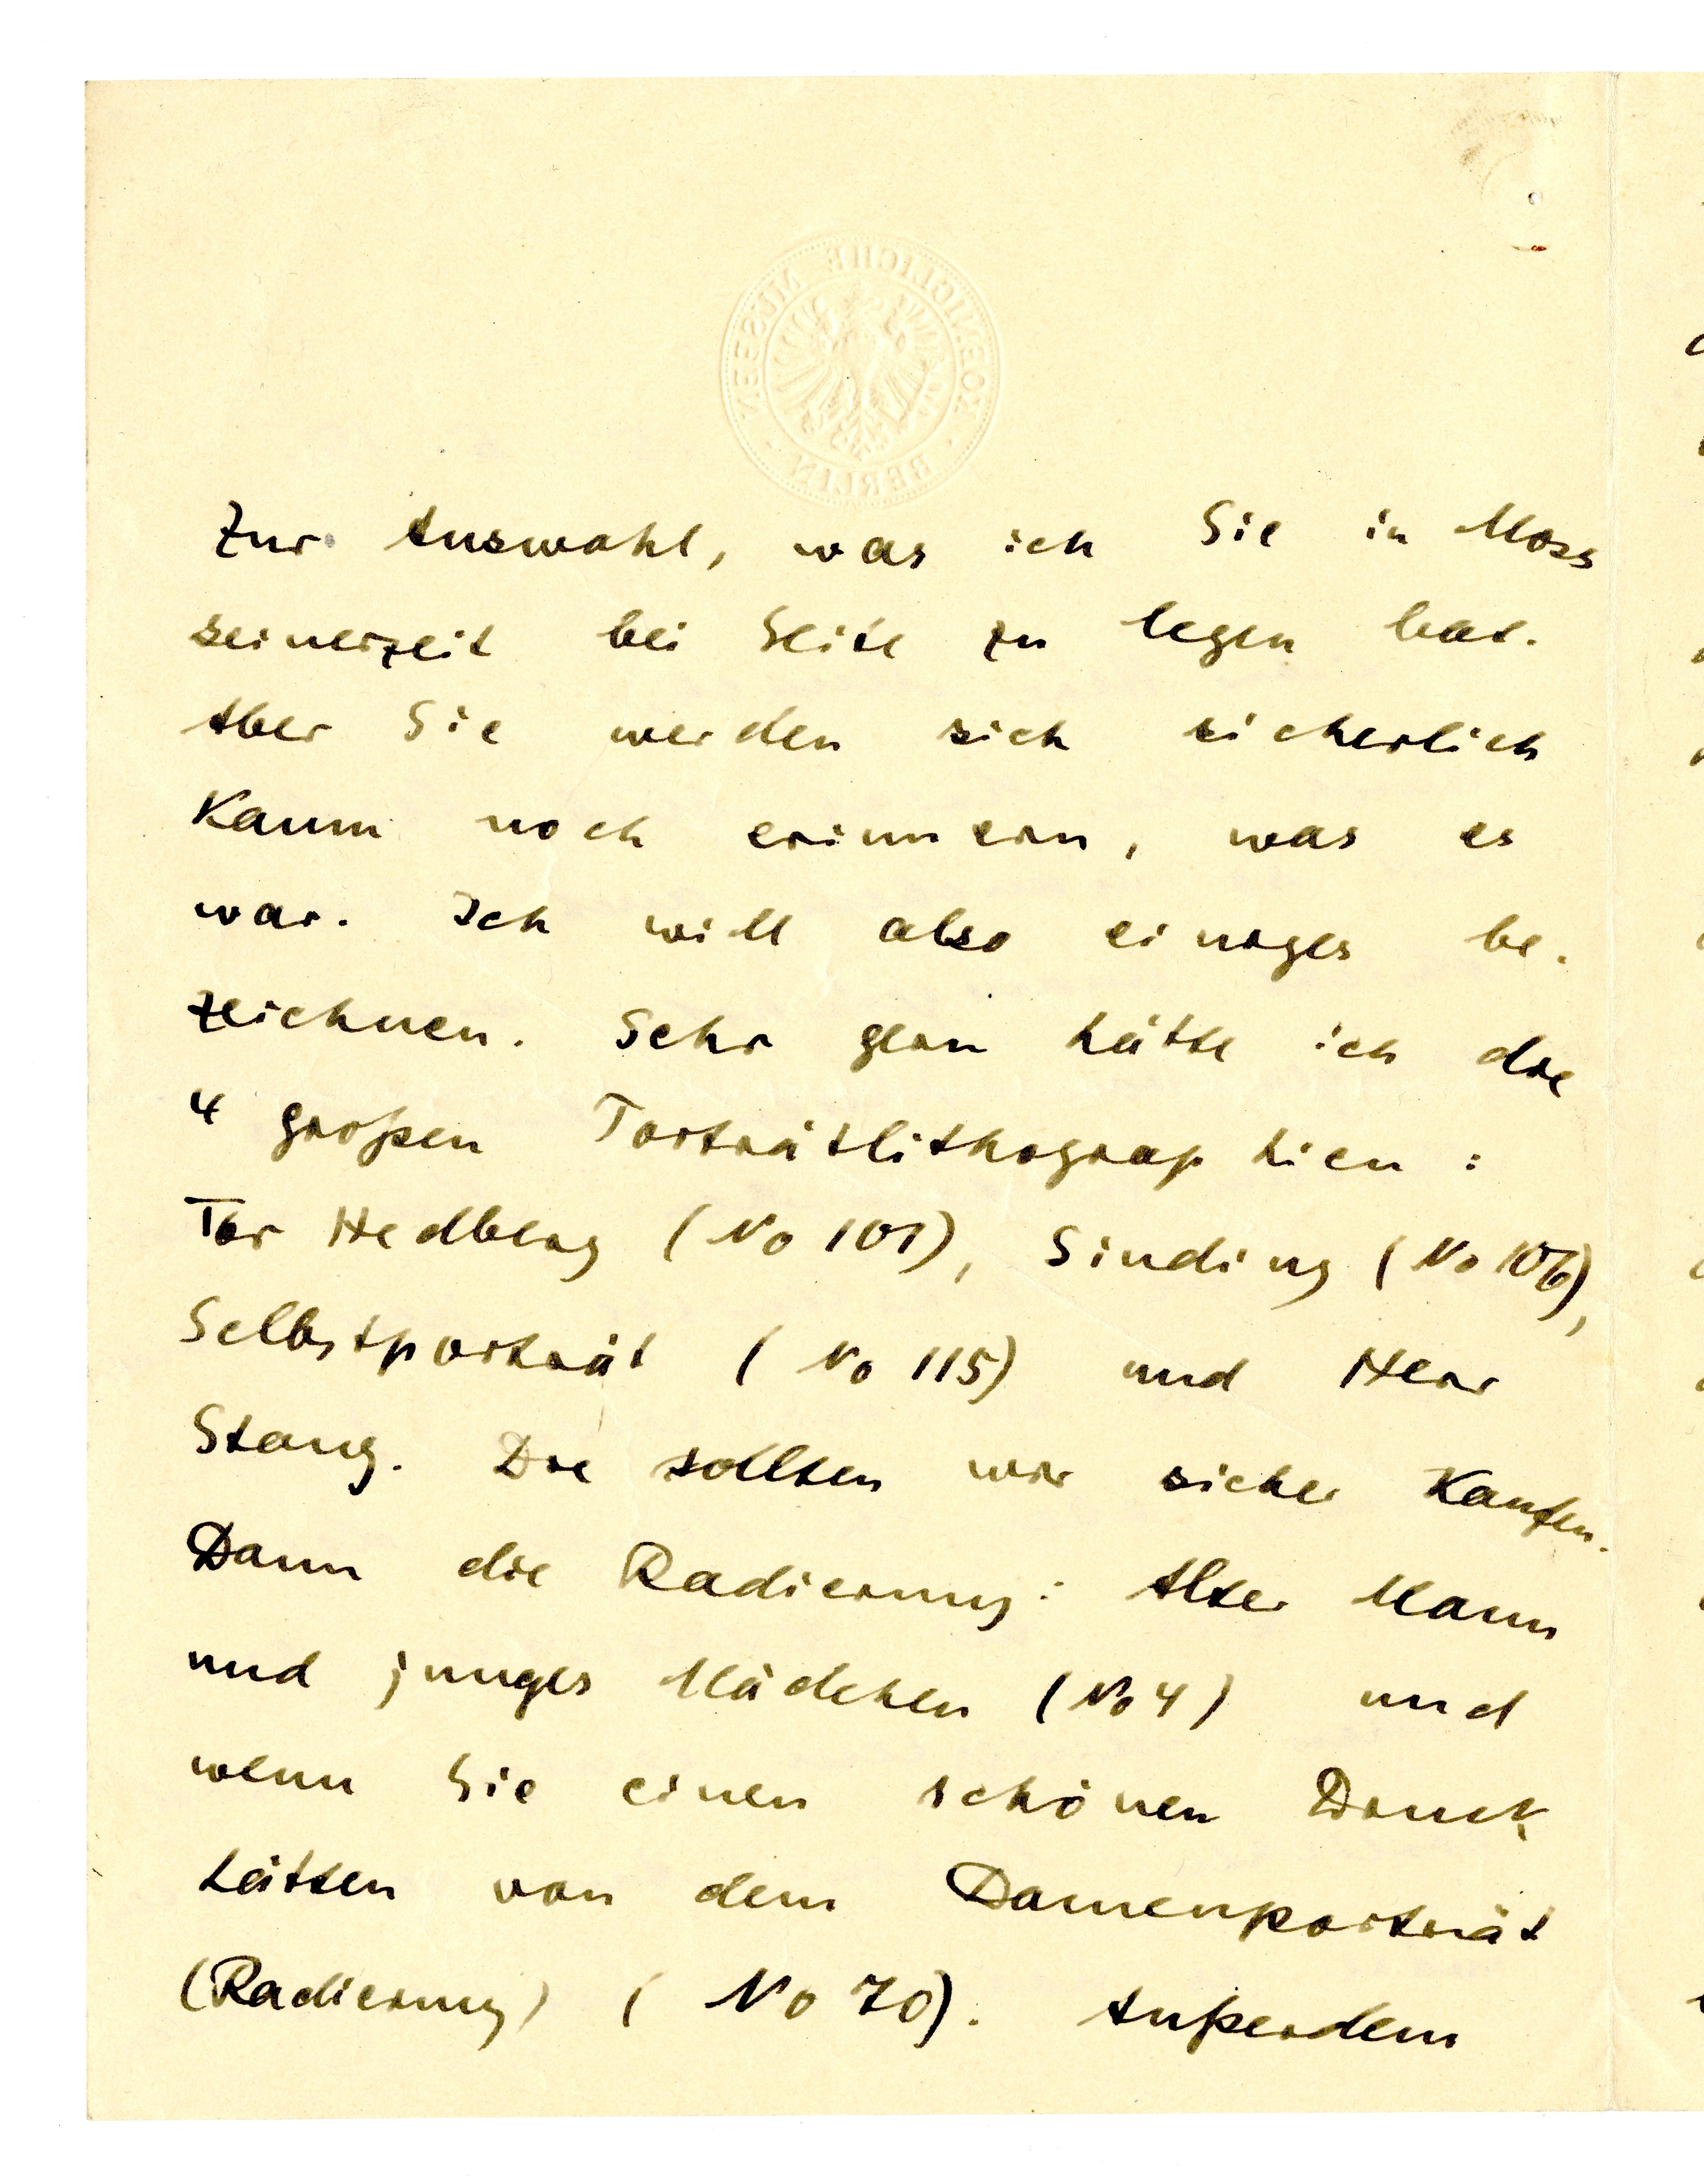 KOENIGLICHE MUSEEN
BERLIN
Zur Auswahl, was ich Sie in Moss
seinerzeit bei Seite zu legen bat.
Aber Sie werden sich sicherlich
Kaum noch erinnern, was es
war. Ich will also einiges be-
zeichnen. Sehr gern hätte ich die
4 großen Porträtlithographien:
Tor Hedberg (No 101), Sinding (No 106),
Selbstporträt (No 115) und Herr
Stang. Die sollten wir sicher Kaufen.
Dann die Radierung: Alter Mann
und junges Mädchen (No 4) und
wenn Sie einen schönen Druck
hätten von dem Damenporträt
(Radierung) (No 70). Außerdem